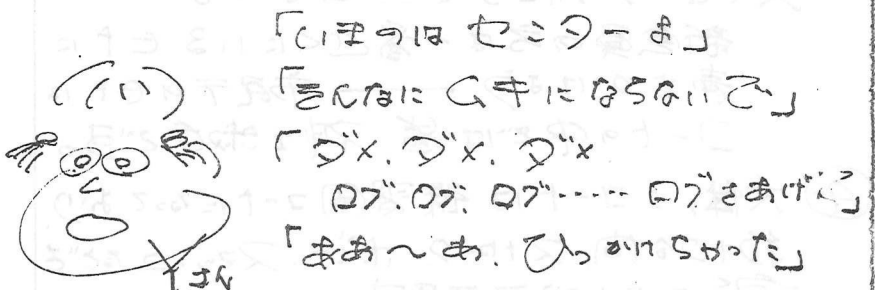 「いまのは センターよ」
「そんなに ムキにならないで」
「ダメ、ダメ、ダメ
ロブ、ロブ、ロブ…… ロブをあげて」
「ああ〜あ、ひっかけちゃった」
Iさん